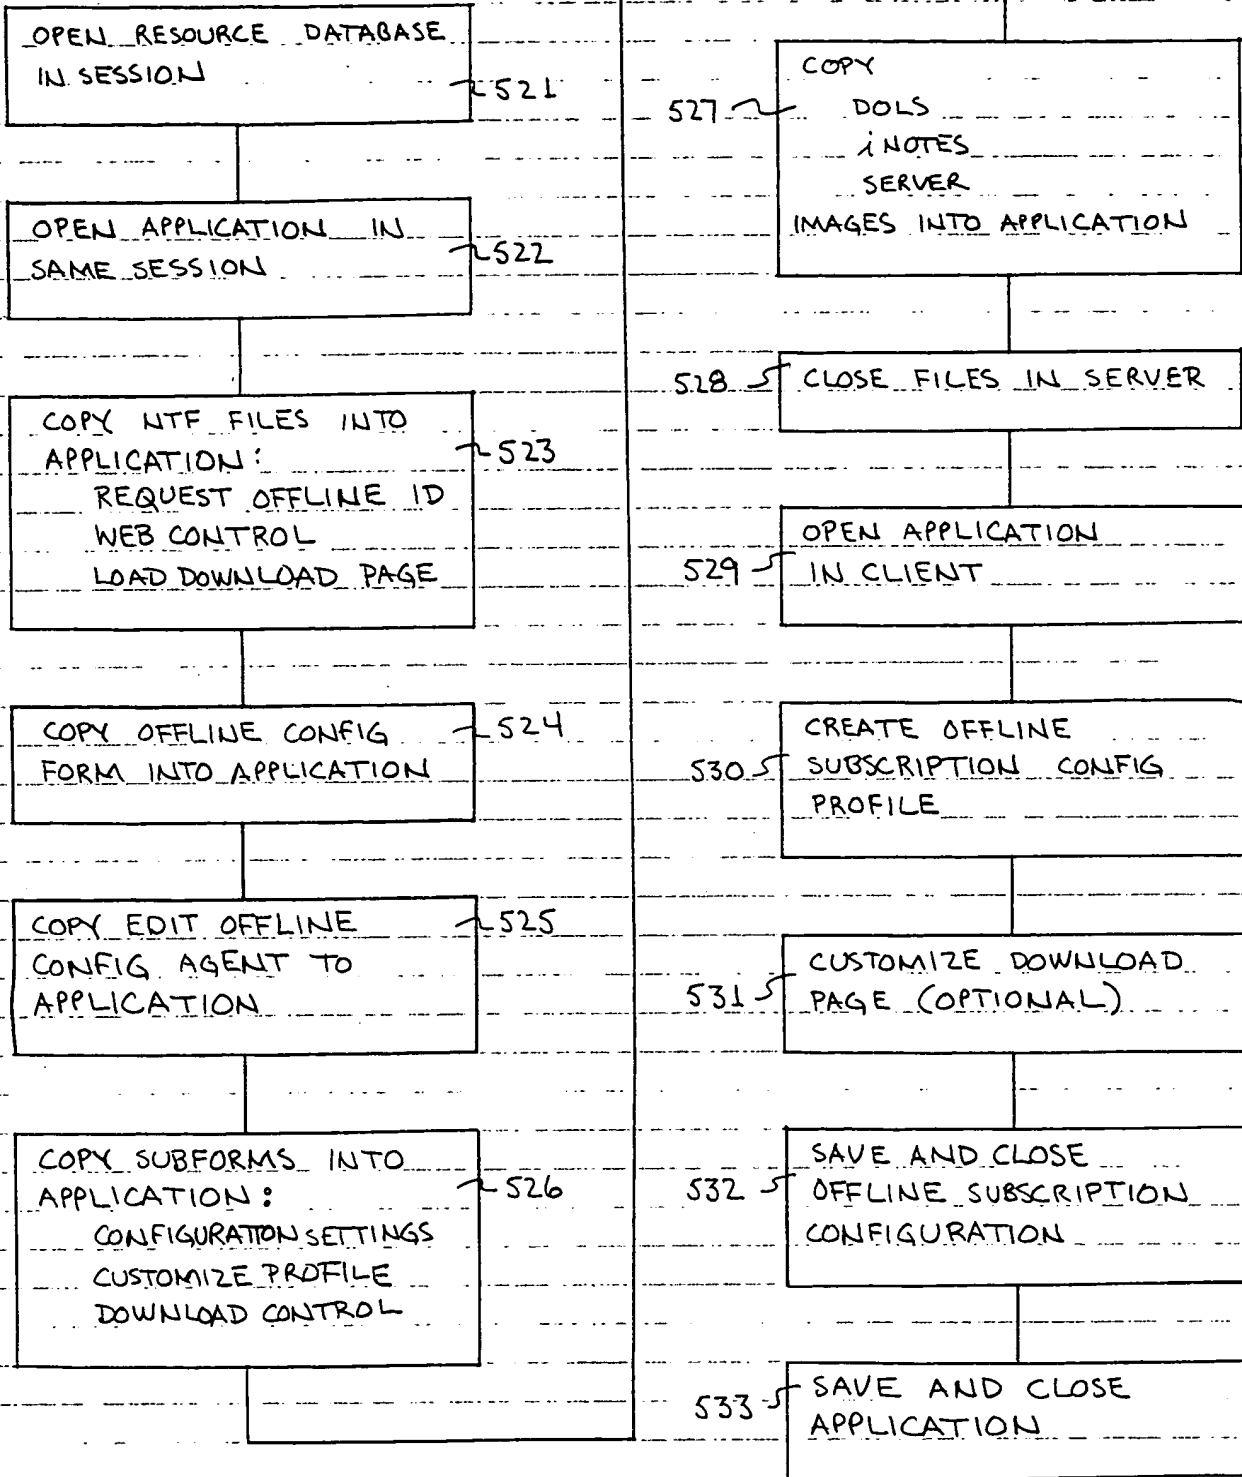 OPEN RESOURCE DATABASE
IN SESSION
521
OPEN APPLICATION IN
SAME SESSION
522
COPY NTF FILES INTO
APPLICATION:
523
REQUEST OFFLINE ID
WEB CONTROL
LOAD DOWNLOAD PAGE
COPY OFFLINE CONFIG
FORM INTO APPLICATION
524
COPY EDIT OFFLINE
CONFIG AGENT TO
APPLICATION
525
COPY SUBFORMS INTO
APPLICATION:
526
CONFIGURATION SETTINGS
CUSTOMIZE PROFILE
DOWNLOAD CONTROL
527
COPY
DOLS
iNOTES
SERVER
IMAGES INTO APPLICATION
528
CLOSE FILES IN SERVER
529
OPEN APPLICATION
IN CLIENT
530
CREATE OFFLINE
SUBSCRIPTION CONFIG
PROFILE
531
CUSTOMIZE DOWNLOAD
PAGE (OPTIONAL)
532
SAVE AND CLOSE
OFFLINE SUBSCRIPTION
CONFIGURATION
533
SAVE AND CLOSE
APPLICATION